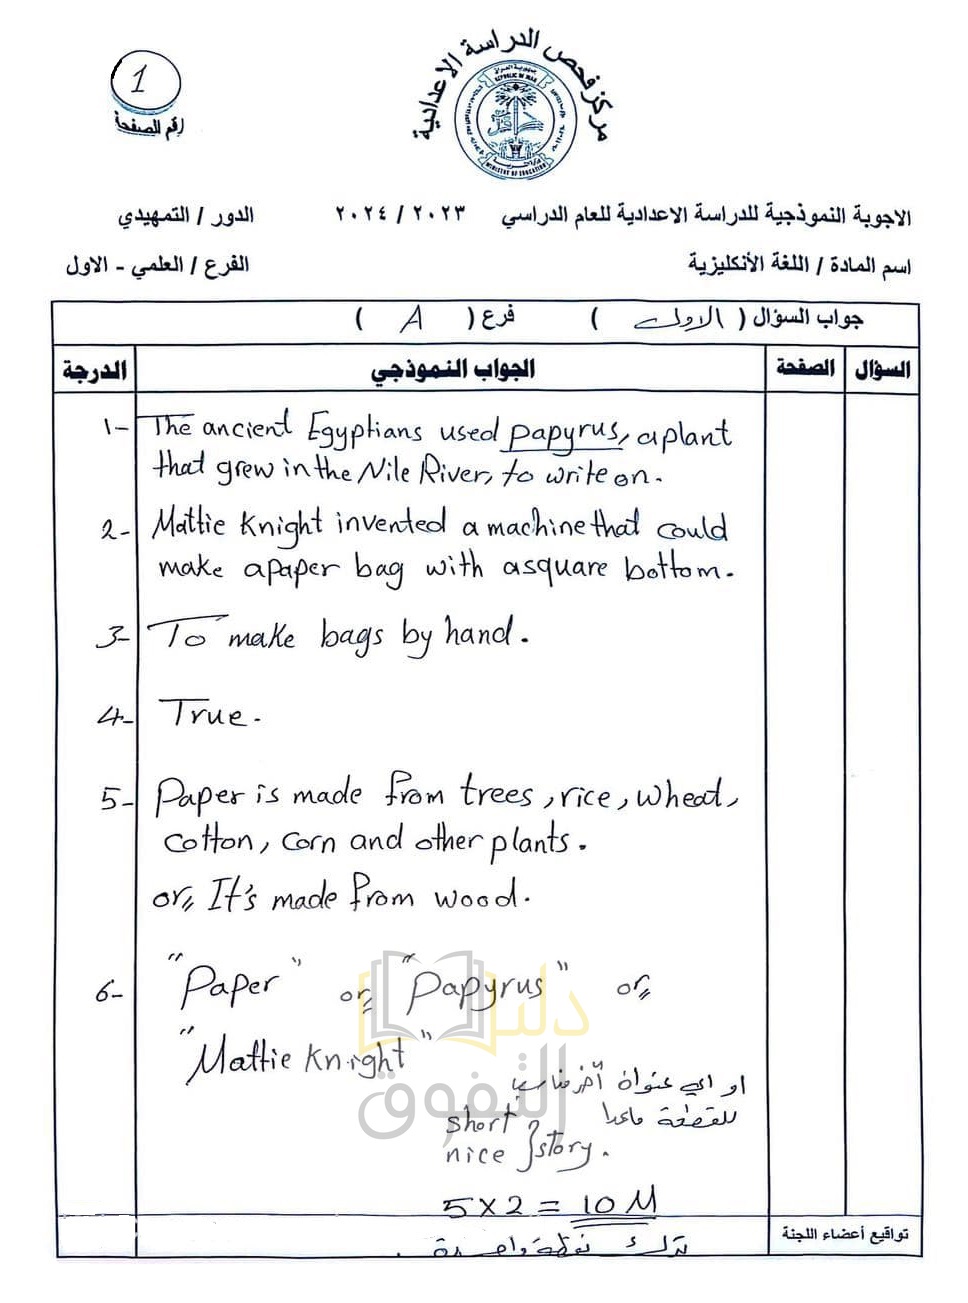 مركز فحص الدراسة الاعدادية
جمهورية العراق
REPUBLIC OF IRAQ
MINISTRY OF EDUCATION
1
رقم الصفحة
الاجوبة النموذجية للدراسة الاعدادية للعام الدراسي ٢٠٢٣ / ٢٠٢٤ الدور / التمهيدي
اسم المادة / اللغة الأنكليزية الفرع / العلمي - الاول
جواب السؤال ( الاول ) فرع ( A )
السؤال الصفحة الجواب النموذجي الدرجة
1- The ancient Egyptians used papyrus, a plant
that grew in the Nile River, to write on.
2- Mattie Knight invented a machine that could
make a paper bag with a square bottom.
3- To make bags by hand.
4- True.
5- Paper is made from trees, rice, wheat,
cotton, corn and other plants.
or,, It's made from wood.
6- "Paper" or,, "Papyrus" or,,
"Mattie Knight"
او اي عنوان آخر مناسب
للقطعة ماعدا
short
nice } story.
دليل
التفوق
5 x 2 = 10 M
تترك نقطة واحدة .
تواقيع أعضاء اللجنة